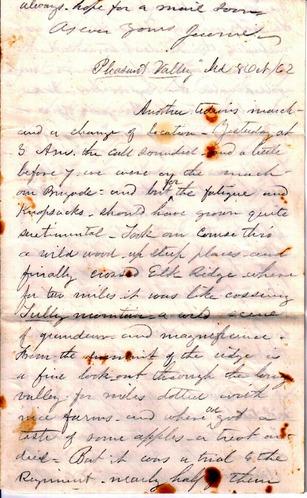 always. hope for a mail soon
As ever Yours
"Pleasant Valley" Md 8 Oct/62
Another tedious march
and a change of location - Yesterday at
3 Am. the call sounded and a little
before 7 we were on the march
our Brigade - and but for the fatigue and
Knapsacks - should have grown quite
sentimental - Took our course thro
a wild wood - up steep places - and
finally crossed Elk Ridge where
for two miles it was like crossing
mountain a wild scene
of grandeur and magnificence -
From the summit of the ridge is
a fine look out through the long
valley - for miles dotted with
nice farms - and where we got a
taste of some apples - a treat in-
deed - But it was a trial to the
Regiment - nearly half of them